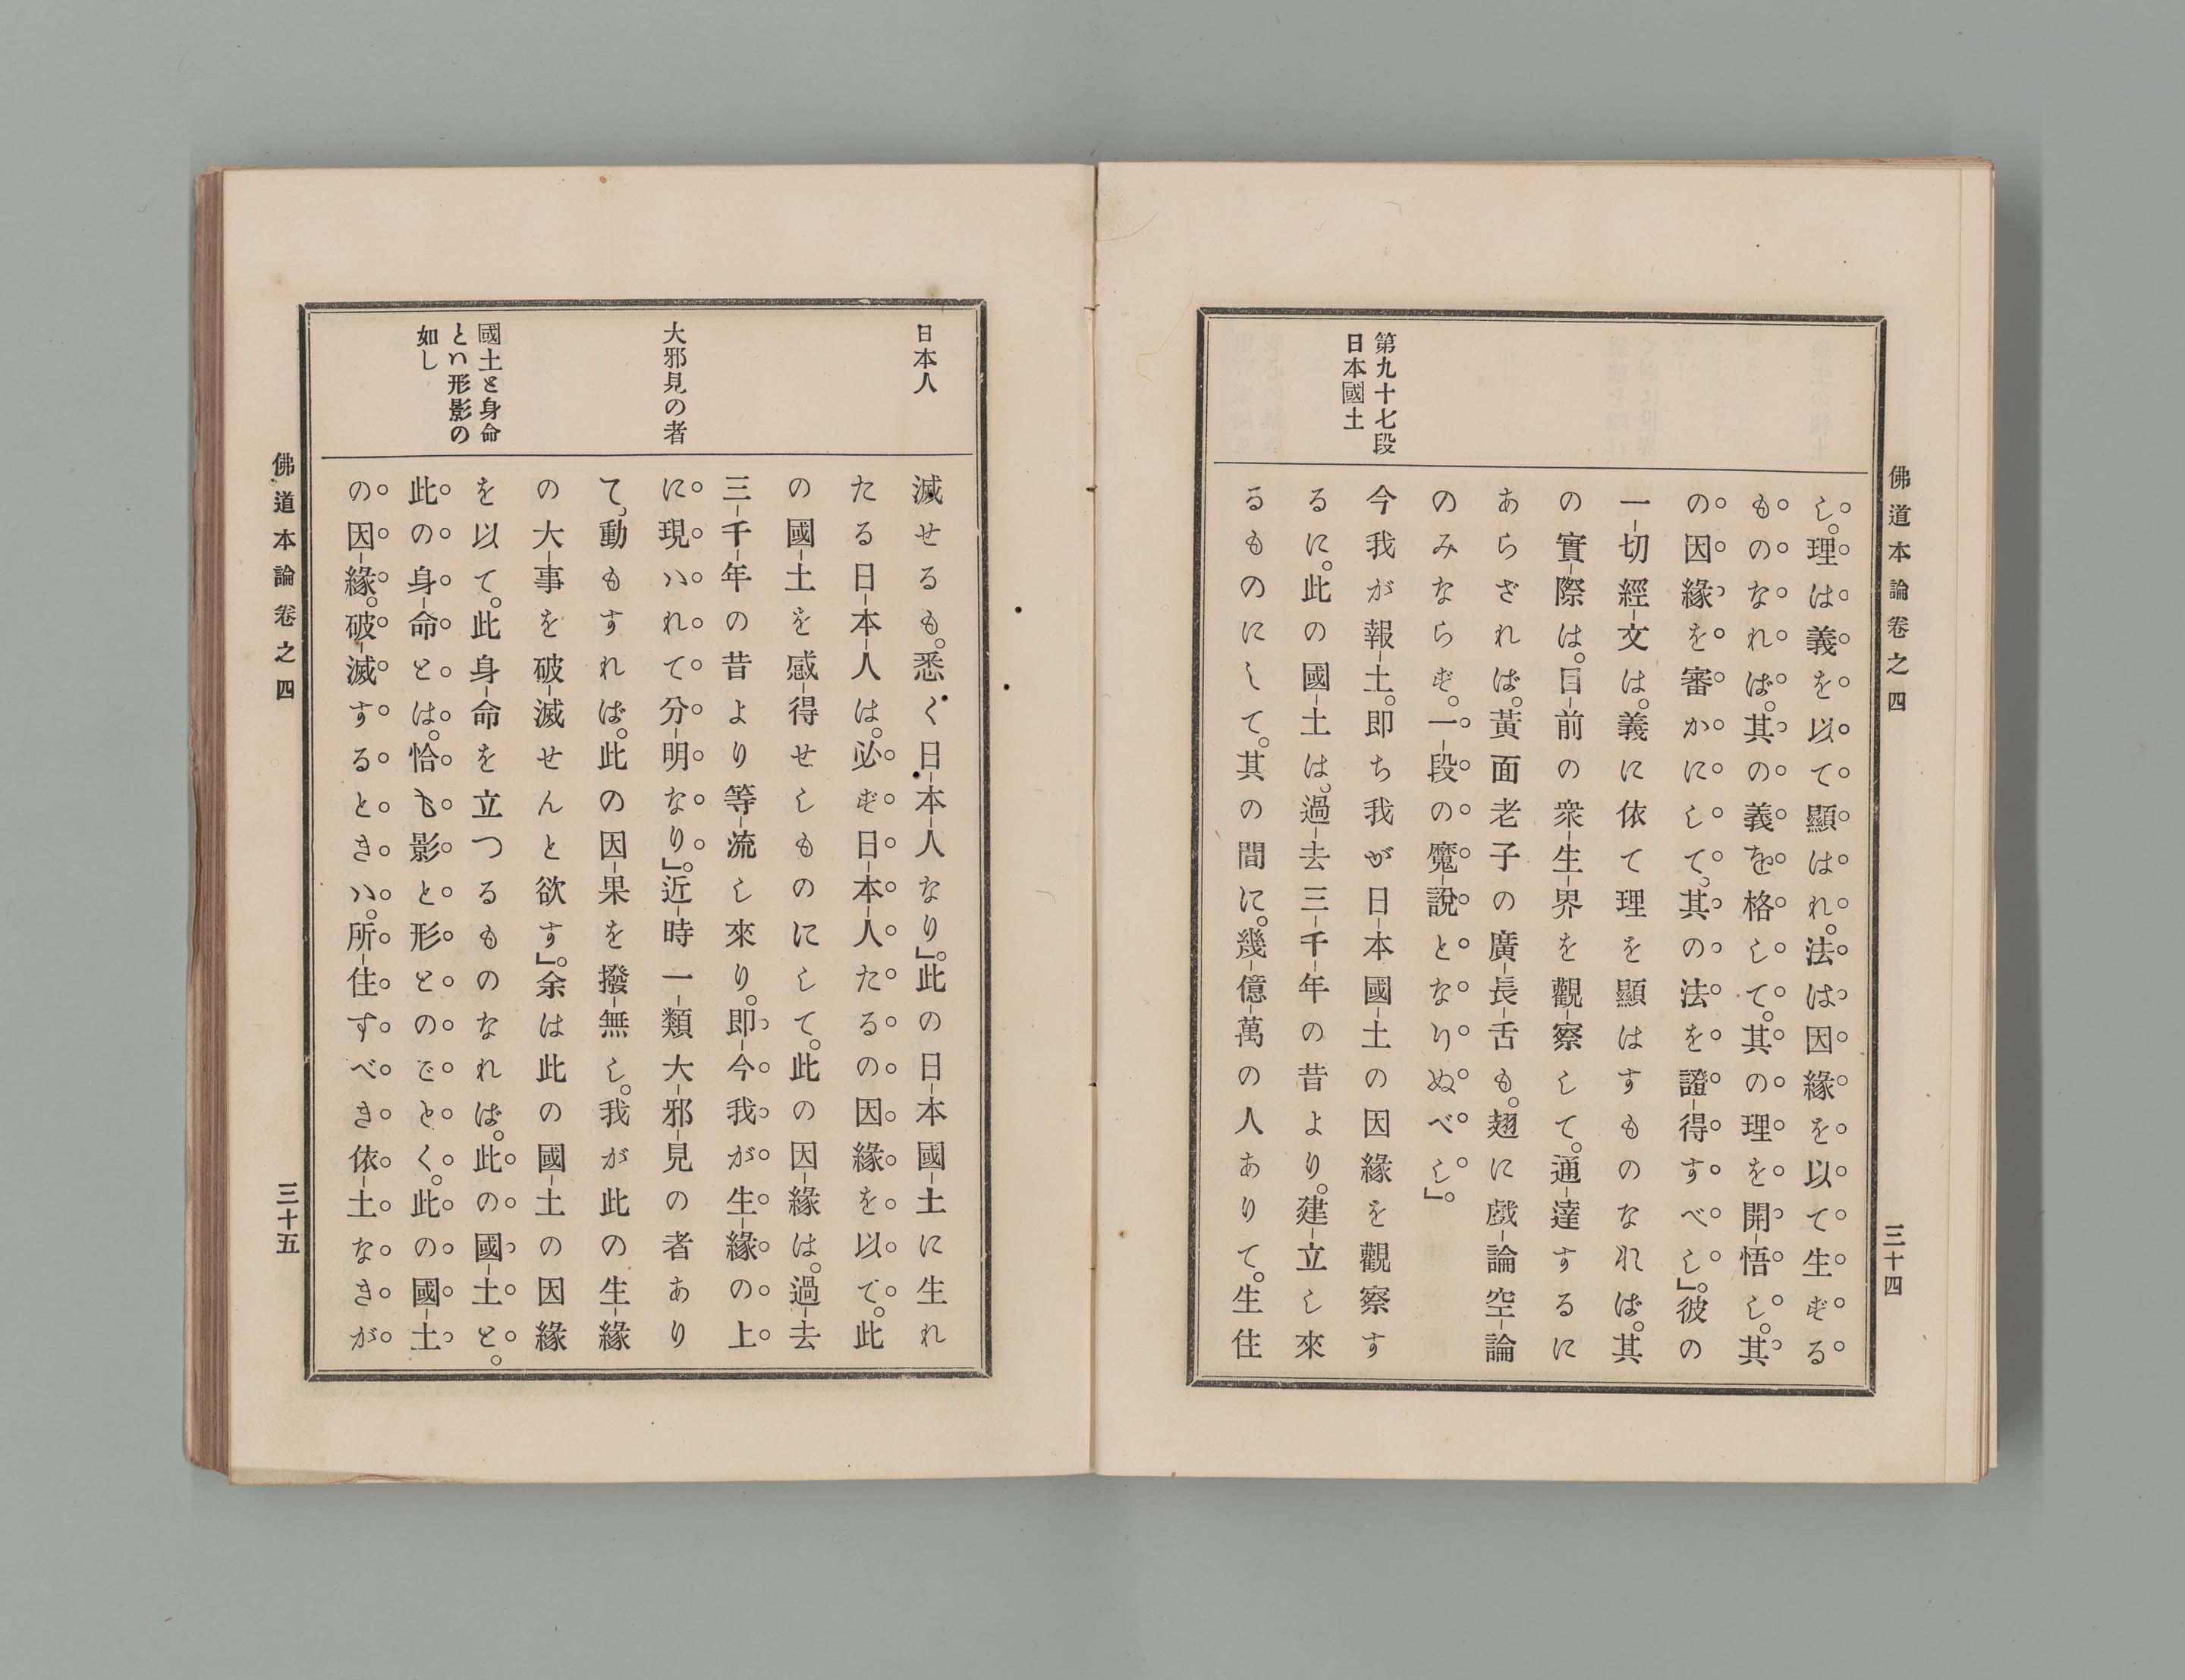 佛道本論卷之四
三十四
第九十七段
日本國土
し。理は義を以て顯はれ。法は因緣を以て生ずる
ものなれば。其の義を格して。其の理を開-悟し。其
の因緣を審かにして。其の法を證-得すべし』。彼の
一-切經-文は。義に依て理を顯はすものなれば。其
の實-際は。目-前の衆-生-界を觀-察して。通-達するに
あらざれば。黃面老子の廣-長-舌も。翅に戲-論空-論
のみならず。一-段の魔-說となりぬべし』。
今我が報-土。即ち我が日-本國-土の因緣を觀察す
るに。此の國-土は。過-去三-千-年の昔より。建-立し來
るものにして。其の間に。幾-億-萬の人ありて。生住
日本人
大邪見の者
國土と身命
とハ形影の
如し
滅せるも。悉く日-本-人なり』。此の日-本國-土に生れ
たる日-本-人は。必ず日-本-人たるの因緣を以て。此
の國-土を感-得せしものにして。此の因-緣は。過-去
三-千-年の昔より等-流し來り。即-今我が生-緣の上
に現ハれて分-明なり』。近-時一-類大-邪-見の者あり
て。動もすれば。此の因-果を撥-無し。我が此の生-緣
の大-事を破-滅せんと欲す』。余は此の國-土の因緣
を以て。此身-命を立つるものなれば。此の國-土と。
此の身-命とは。恰も影と形とのごとく。此の國-土
の因-緣。破-滅するときハ。所-住すべき依-土なきが
佛道本論卷之四
三十五